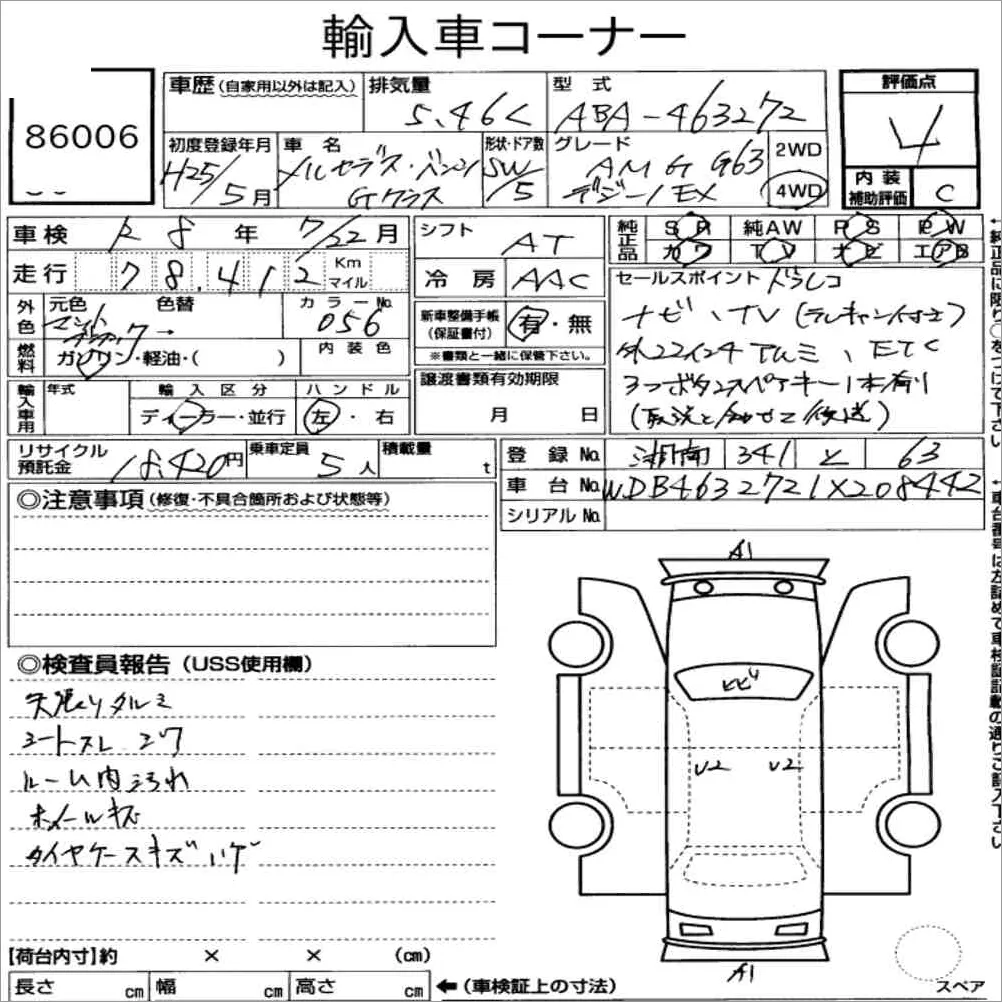 輸入車コーナー
86006
車歴(自家用以外は記入)
排気量
5.46L
型式
ABA-463272
評価点
4
初度登録年月
H25/5月
車名
メルセデス・ベンツ
Gクラス
形状・ドア数
SW/5
グレード
AMG G63
デジーノEX
2WD
4WD
内装補助評価
C
車検
R8年 7/22月
走行
78,412
Km
マイル
シフト
AT
冷房
AAC
純正品
SR 純AW PS PW
カワ TV ナビ エアB
外色
元色
色替
カラーNo.
056
内装色
燃料
ガソリン・軽油・( )
新車整備手帳
(保証書付)
有・無
※書類と一緒に保管下さい。
セールスポイント ドラレコ
ナビ、TV(テレキャン付き)
外22インチアルミ、ETC
3つボタンスペアキー1本有り
輸入車用
年式
輸入区分
ディーラー・並行
ハンドル
左・右
譲渡書類有効期限
月 日
リサイクル預託金
18,420円
乗車定員
5人
積載量
t
登録No.
湘南 341 と 63
車台No.
WDB4632721X208442
シリアルNo.
◎注意事項(修復・不具合箇所および状態等)
◎検査員報告(USS使用欄)
天張りタルミ
シートスレ コゲ
ルーム内汚れ
ホイールキズ
タイヤケースキズハゲ
A1
ヒビ
U2 U2
A1
スペア
【荷台内寸】約 × × (cm)
長さ cm 幅 cm 高さ cm
←(車検証上の寸法)